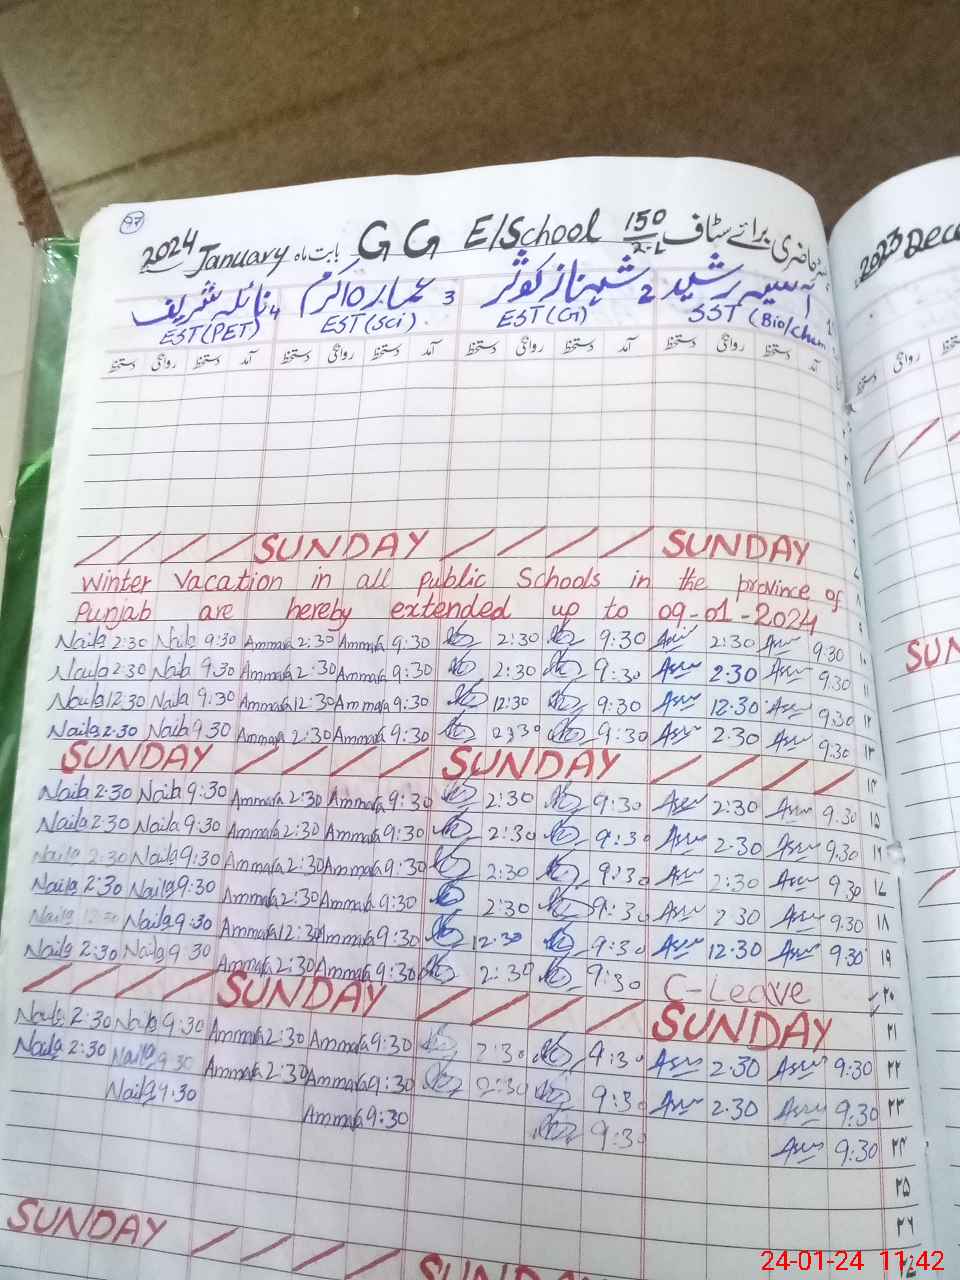 47
2024 January بابت ماہ G G E/School 150/2-L حاضری برائے سٹاف
2023 Dece
آسیہ رشید 2 شہناز کوثر 3 عمارہ اکرم 4 نائلہ شریف
EST(PET) EST(Sci) EST(G) SST (Bio/Chem
آمد دستخط روانگی دستخط آمد دستخط روانگی دستخط آمد دستخط روانگی دستخط آمد دستخط روانگی دستخط
SUNDAY SUNDAY
Winter Vacation in all public Schools in the province of
Punjab are hereby extended up to 09-01-2024
Naila 2:30 Naila 9:30 Ammara 2:30 Ammara 9:30 2:30 9:30 2:30 9:30 ۱۰
Naila 2:30 Naila 9:30 Ammara 2:30 Ammara 9:30 2:30 9:30 2:30 9:30 ۱۱
Naila 12:30 Naila 9:30 Ammara 12:30 Ammara 9:30 12:30 9:30 12:30 9:30 ۱۲
Naila 2:30 Naila 9:30 Ammara 2:30 Ammara 9:30 2:30 9:30 2:30 9:30 ۱۳
SUNDAY SUNDAY
Naila 2:30 Naila 9:30 Ammara 2:30 Ammara 9:30 2:30 9:30 2:30 9:30 ۱۵
Naila 2:30 Naila 9:30 Ammara 2:30 Ammara 9:30 2:30 9:30 2:30 9:30
Naila 2:30 Naila 9:30 Ammara 2:30 Ammara 9:30 2:30 9:30 2:30 9:30 ۱۷
Naila 2:30 Naila 9:30 Ammara 2:30 Ammara 9:30 2:30 9:30 2:30 9:30 ۱۸
Naila 12:30 Naila 9:30 Ammara 12:30 Ammara 9:30 12:30 9:30 12:30 9:30 ۱۹
Naila 2:30 Naila 9:30 Ammara 2:30 Ammara 9:30 2:30 9:30 C-Leave ۲۰
SUNDAY SUNDAY ۲۱
Naila 2:30 Naila 9:30 Ammara 2:30 Ammara 9:30 2:30 9:30 2:30 9:30 ۲۲
Naila 2:30 Naila 9:30 Ammara 2:30 Ammara 9:30 2:30 9:30 2:30 9:30 ۲۳
Naila 9:30 Ammara 9:30 9:30 9:30 ۲۴
۲۵
۲۶
SUNDAY SUNDAY
SUN
24-01-24 11:42